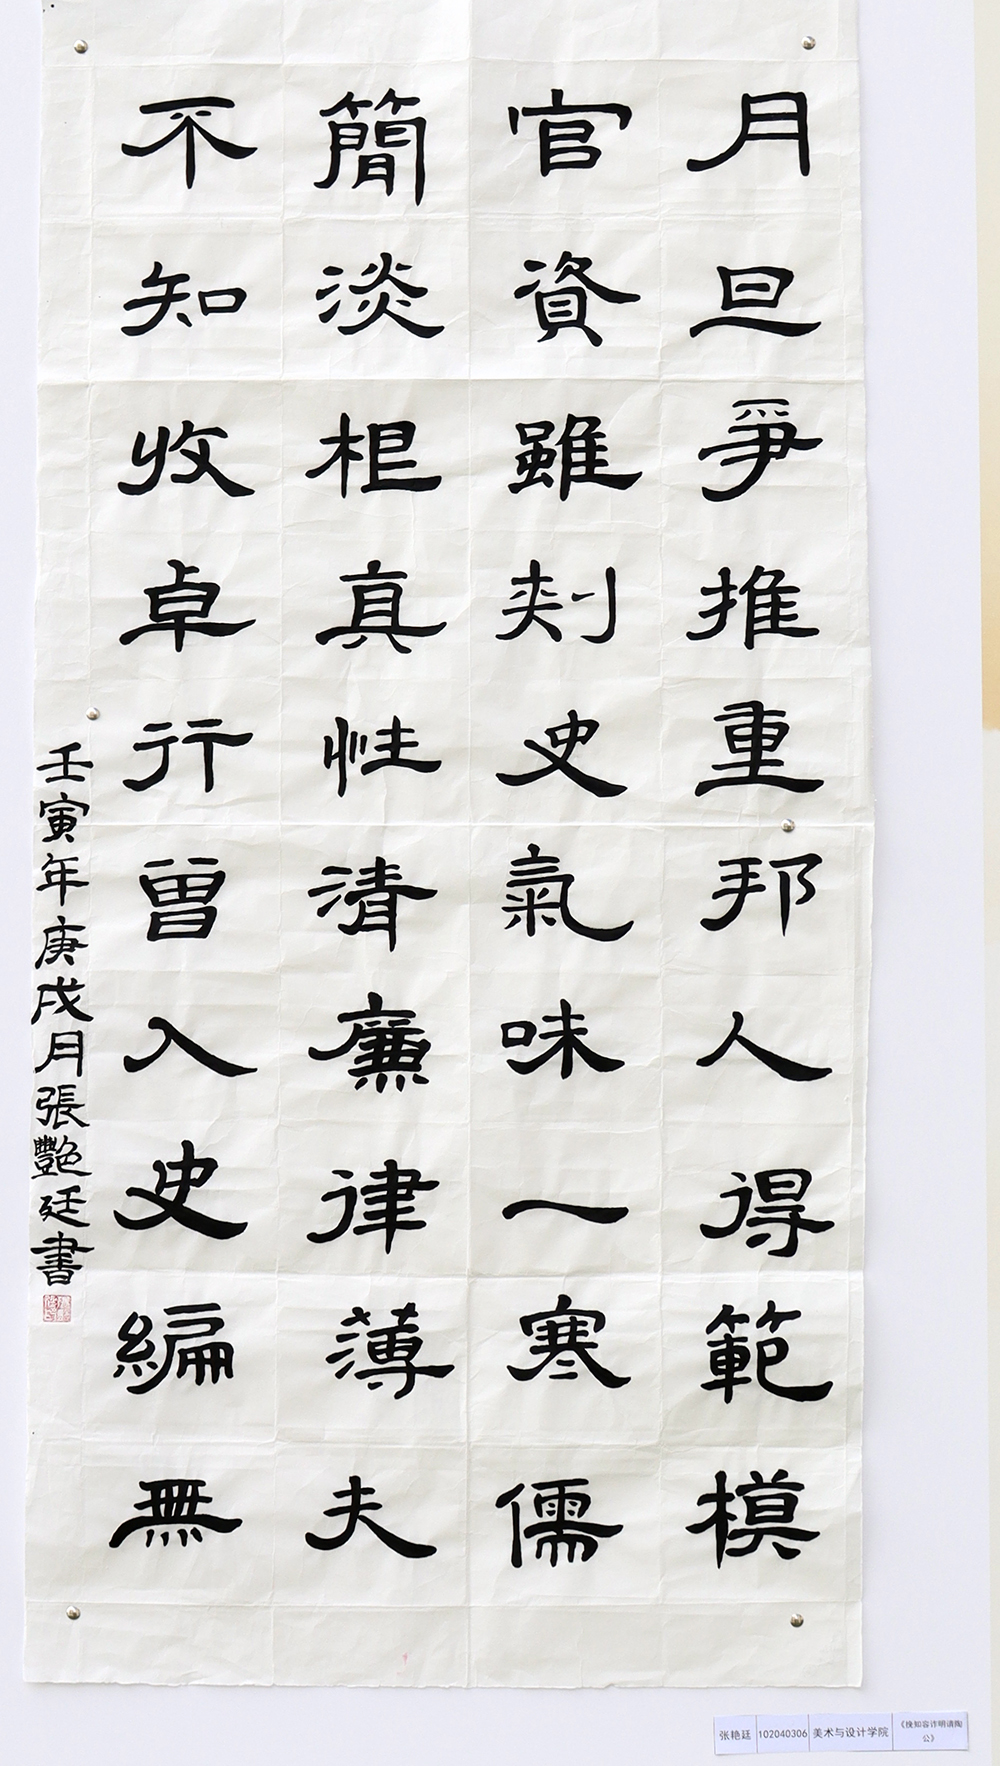 月旦爭推重邦人得範模
官資雖刾史氣味一寒儒
簡淡柤真性清廉律薄夫
不知收卓行曾入史編無
壬寅年庚戌月張艷廷書
张艳廷 102040306 美术与设计学院 《挽知容诈明请陶公》